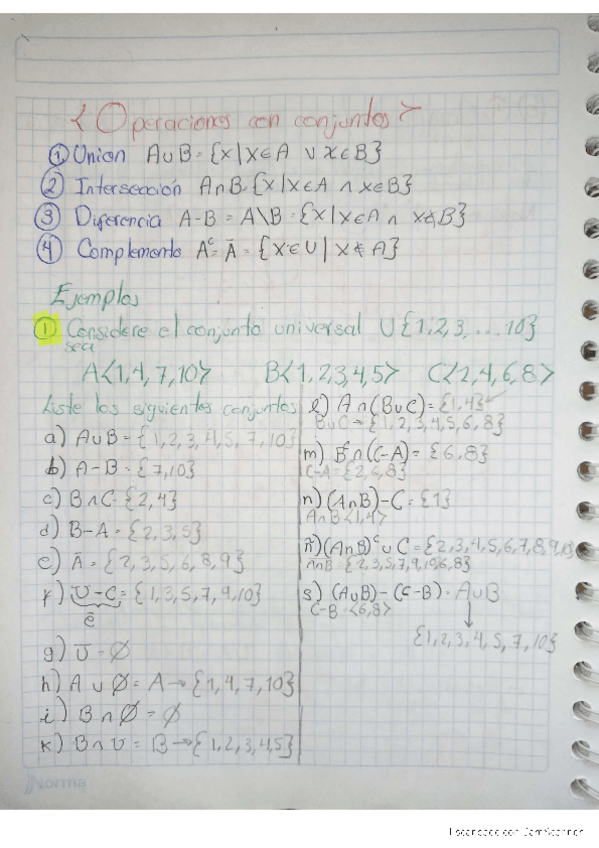 < Operaciones con conjuntos >
① Union A∪B = {x|x∈A ∨ x∈B}
② Intersección A∩B={x|x∈A ∧ x∈B}
③ Diferencia A-B = A\B = {x|x∈A ∧ x∉B}
④ Complemento Aᶜ = Ā = {x∈U | x∉A}
Ejemplos
① Considere el conjunto universal U{1,2,3,....10}
sea
A<1,4,7,10> B<1,2,3,4,5> C<2,4,6,8>
Liste los siguientes conjuntos
a) A∪B = {1,2,3,4,5,7,10}
b) A-B = {7,10}
c) B∩C = {2,4}
d) B-A = {2,3,5}
e) Ā = {2,3,5,6,8,9}
f) U-C = {1,3,5,7,9,10}
c̄
g) Ū = ∅
h) A ∪ ∅ = A → {1,4,7,10}
i) B ∩ ∅ = ∅
k) B ∩ U = B → {1,2,3,4,5}
l) A∩(B∪C) = {1,4}
B∪C → {1,2,3,4,5,6,8}
m) Bᶜ∩(C-A) = {6,8}
C-A = {2,6,8}
n) (A∩B)-C = {1}
A∩B <1,4>
ñ) (A∩B)ᶜ∪C = {2,3,4,5,6,7,8,9,10}
A∩B = {2,3,5,7,9,10,6,8}
s) (A∪B)-(C-B) = A∪B
C-B = <6,8>
{1,2,3,4,5,7,10}
Norma
Escaneado con CamScanner